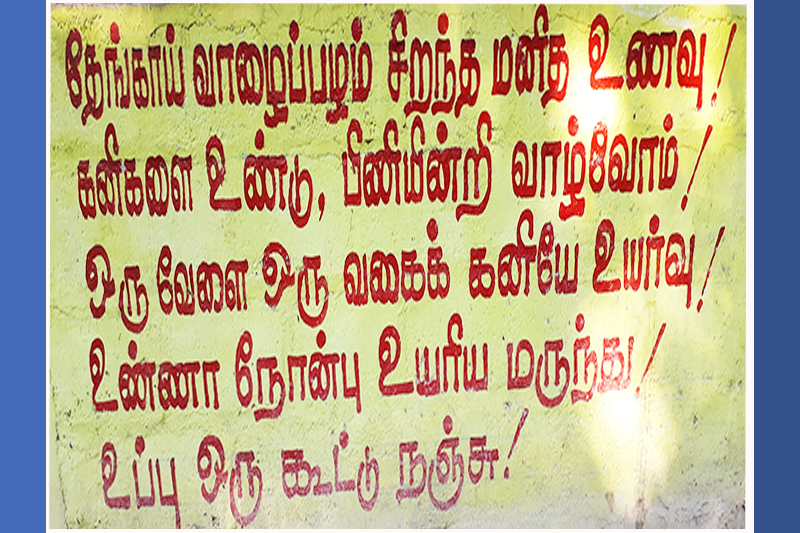 தேங்காய் வாழைப்பழம் சிறந்த மனித உணவு!
கனிகளை உண்டு, பிணியின்றி வாழ்வோம்!
ஒரு வேளை ஒரு வகைக் கனியே உயர்வு!
உண்ணா நோன்பு உயரிய மருந்து!
உப்பு ஒரு கூட்டு நஞ்சு!